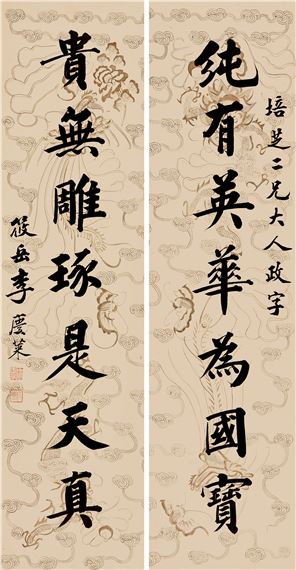 培芝二兄大人政字
純有英華為國寶
貴無雕琢是天真
筱岳李慶棻